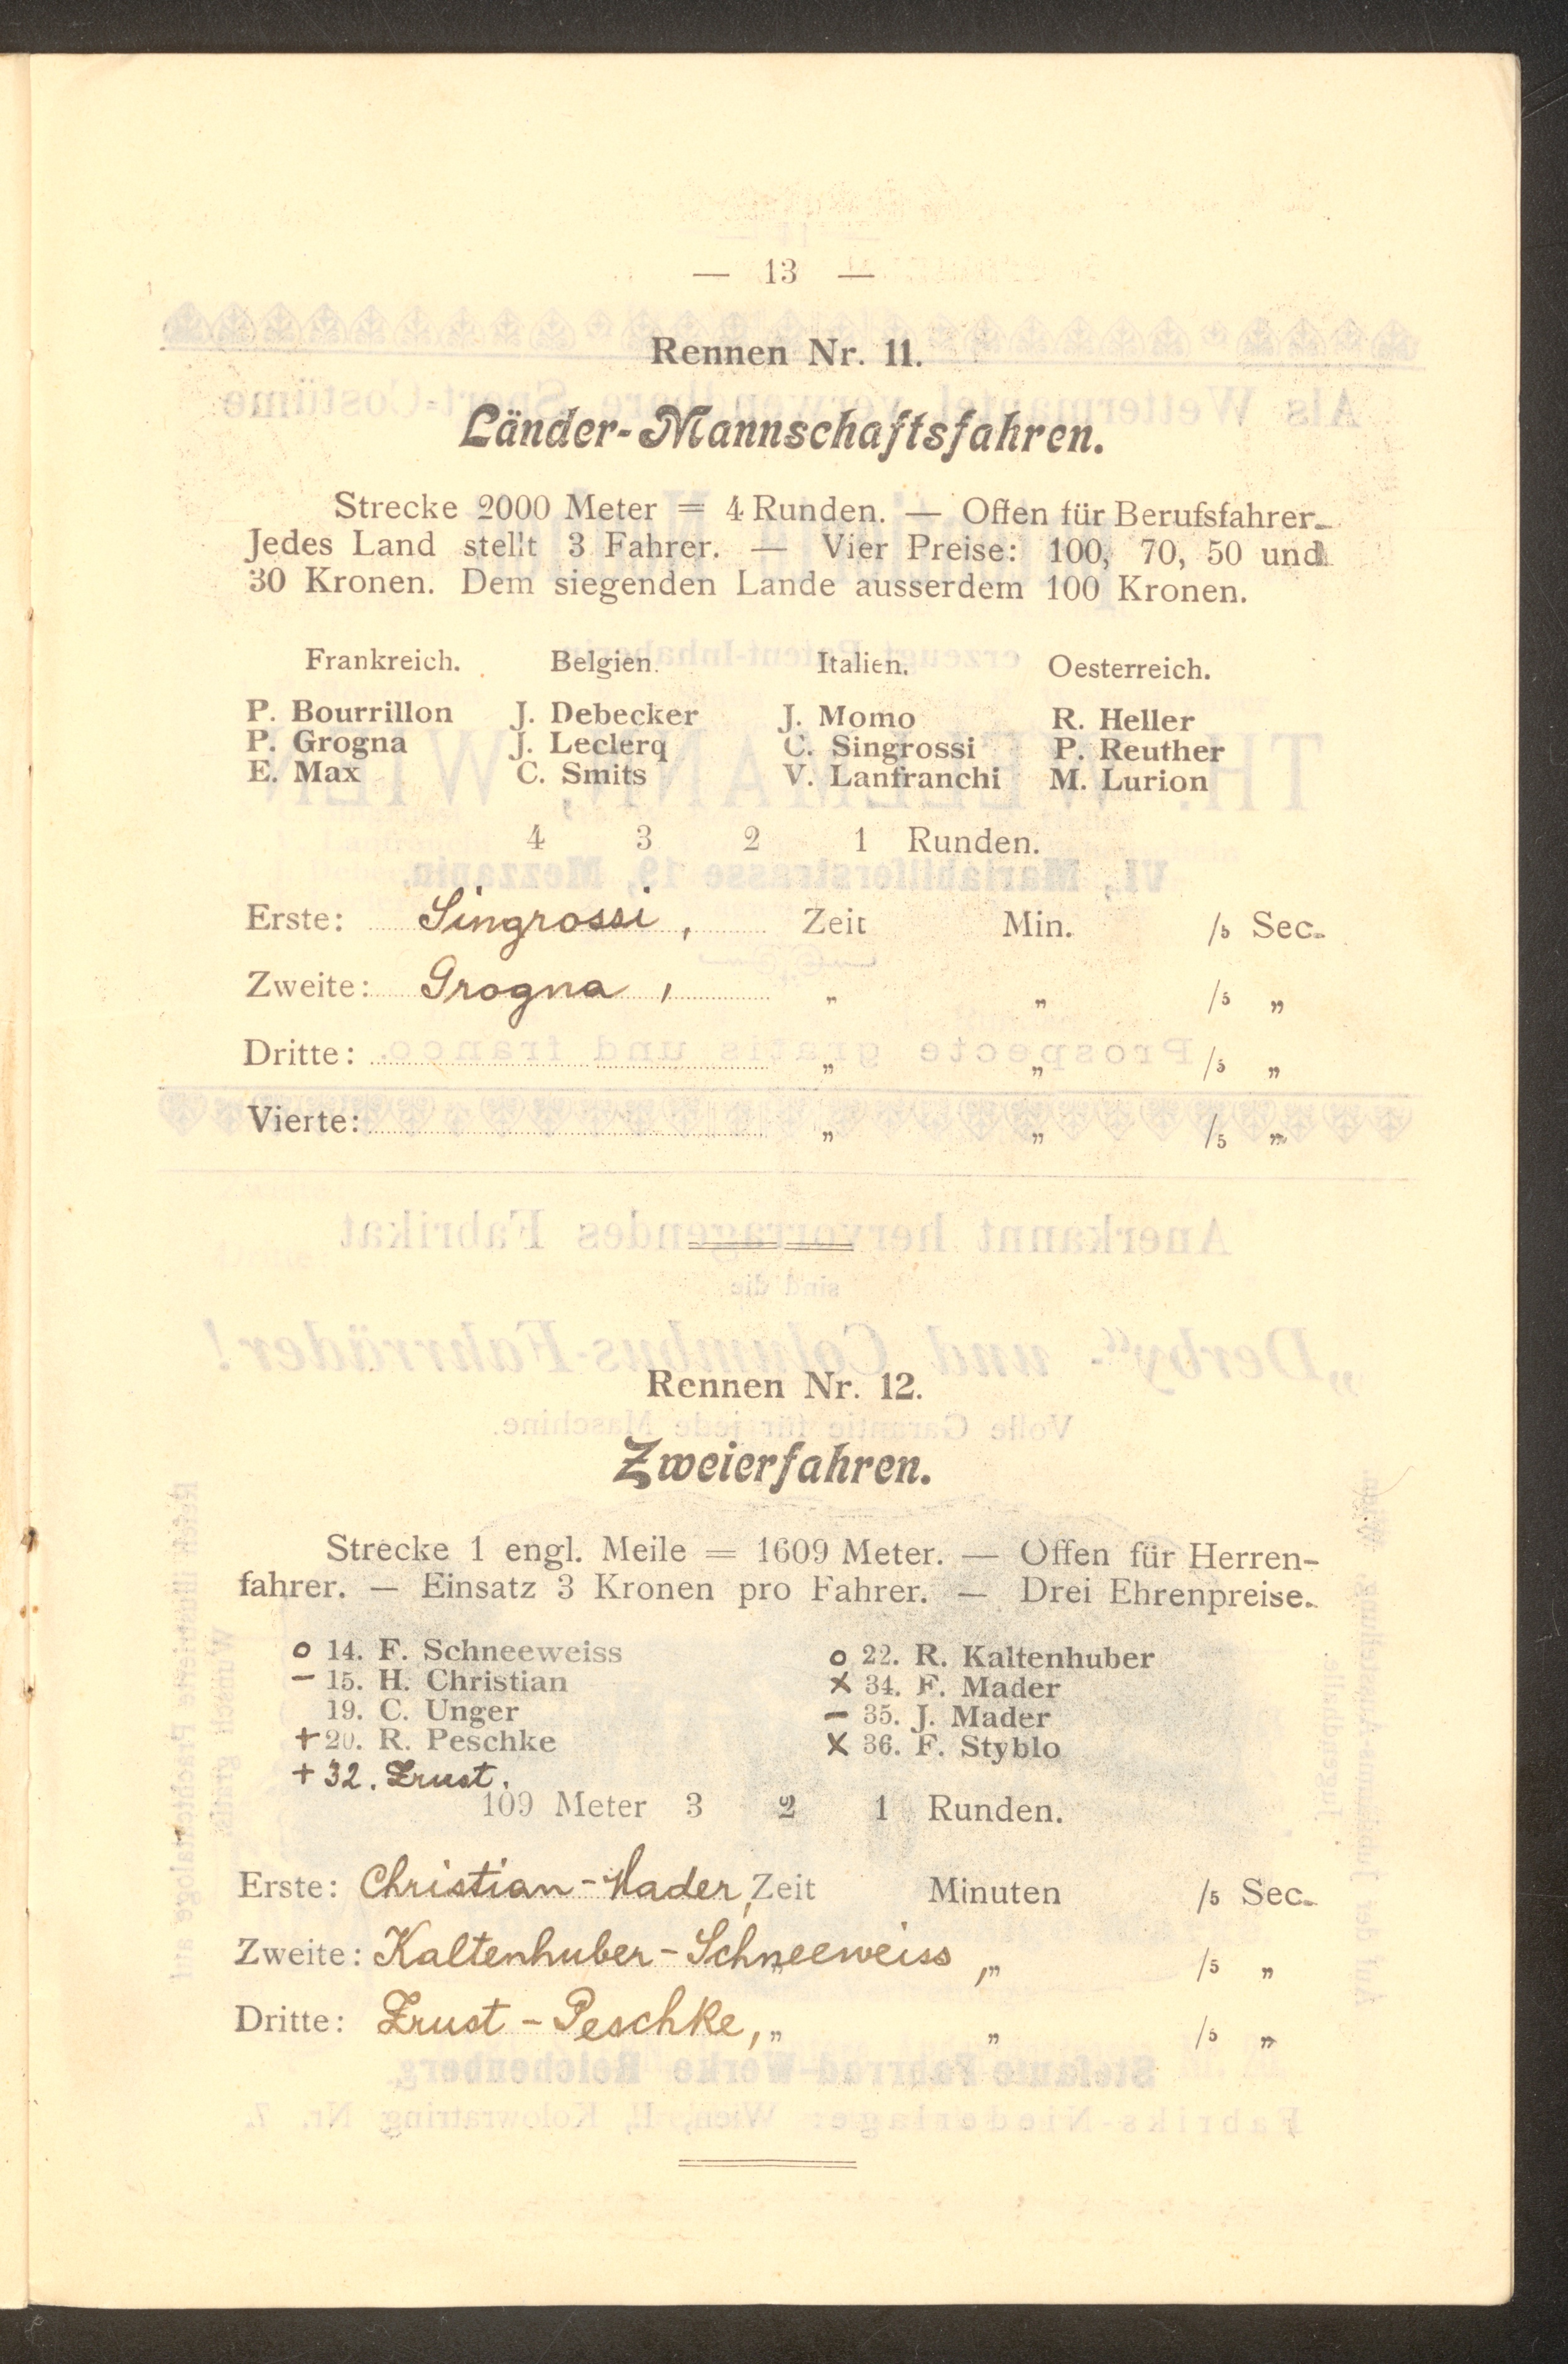 — 13 —
Rennen Nr. 11.
Länder-Mannschaftsfahren.
Strecke 2000 Meter = 4 Runden. — Offen für Berufsfahrer.
Jedes Land stellt 3 Fahrer. — Vier Preise: 100, 70, 50 und
30 Kronen. Dem siegenden Lande ausserdem 100 Kronen.
Frankreich. Belgien. Italien. Oesterreich.
P. Bourrillon J. Debecker J. Momo R. Heller
P. Grogna J. Leclerq C. Singrossi P. Reuther
E. Max C. Smits V. Lanfranchi M. Lurion
4 3 2 1 Runden.
Erste: Singrossi, Zeit Min. /5 Sec.
Zweite: Grogna, „ „ /5 „
Dritte: „ „ /5 „
Vierte: „ „ /5 „
Rennen Nr. 12.
Zweierfahren.
Strecke 1 engl. Meile = 1609 Meter. — Offen für Herren-
fahrer. — Einsatz 3 Kronen pro Fahrer. — Drei Ehrenpreise.
o 14. F. Schneeweiss o 22. R. Kaltenhuber
– 15. H. Christian x 34. F. Mader
19. C. Unger – 35. J. Mader
+ 20. R. Peschke x 36. F. Styblo
+ 32. Zrust.
109 Meter 3 2 1 Runden.
Erste: Christian-Mader, Zeit Minuten /5 Sec.
Zweite: Kaltenhuber-Schneeweiss, „ „ /5 „
Dritte: Zrust-Peschke, „ „ /5 „